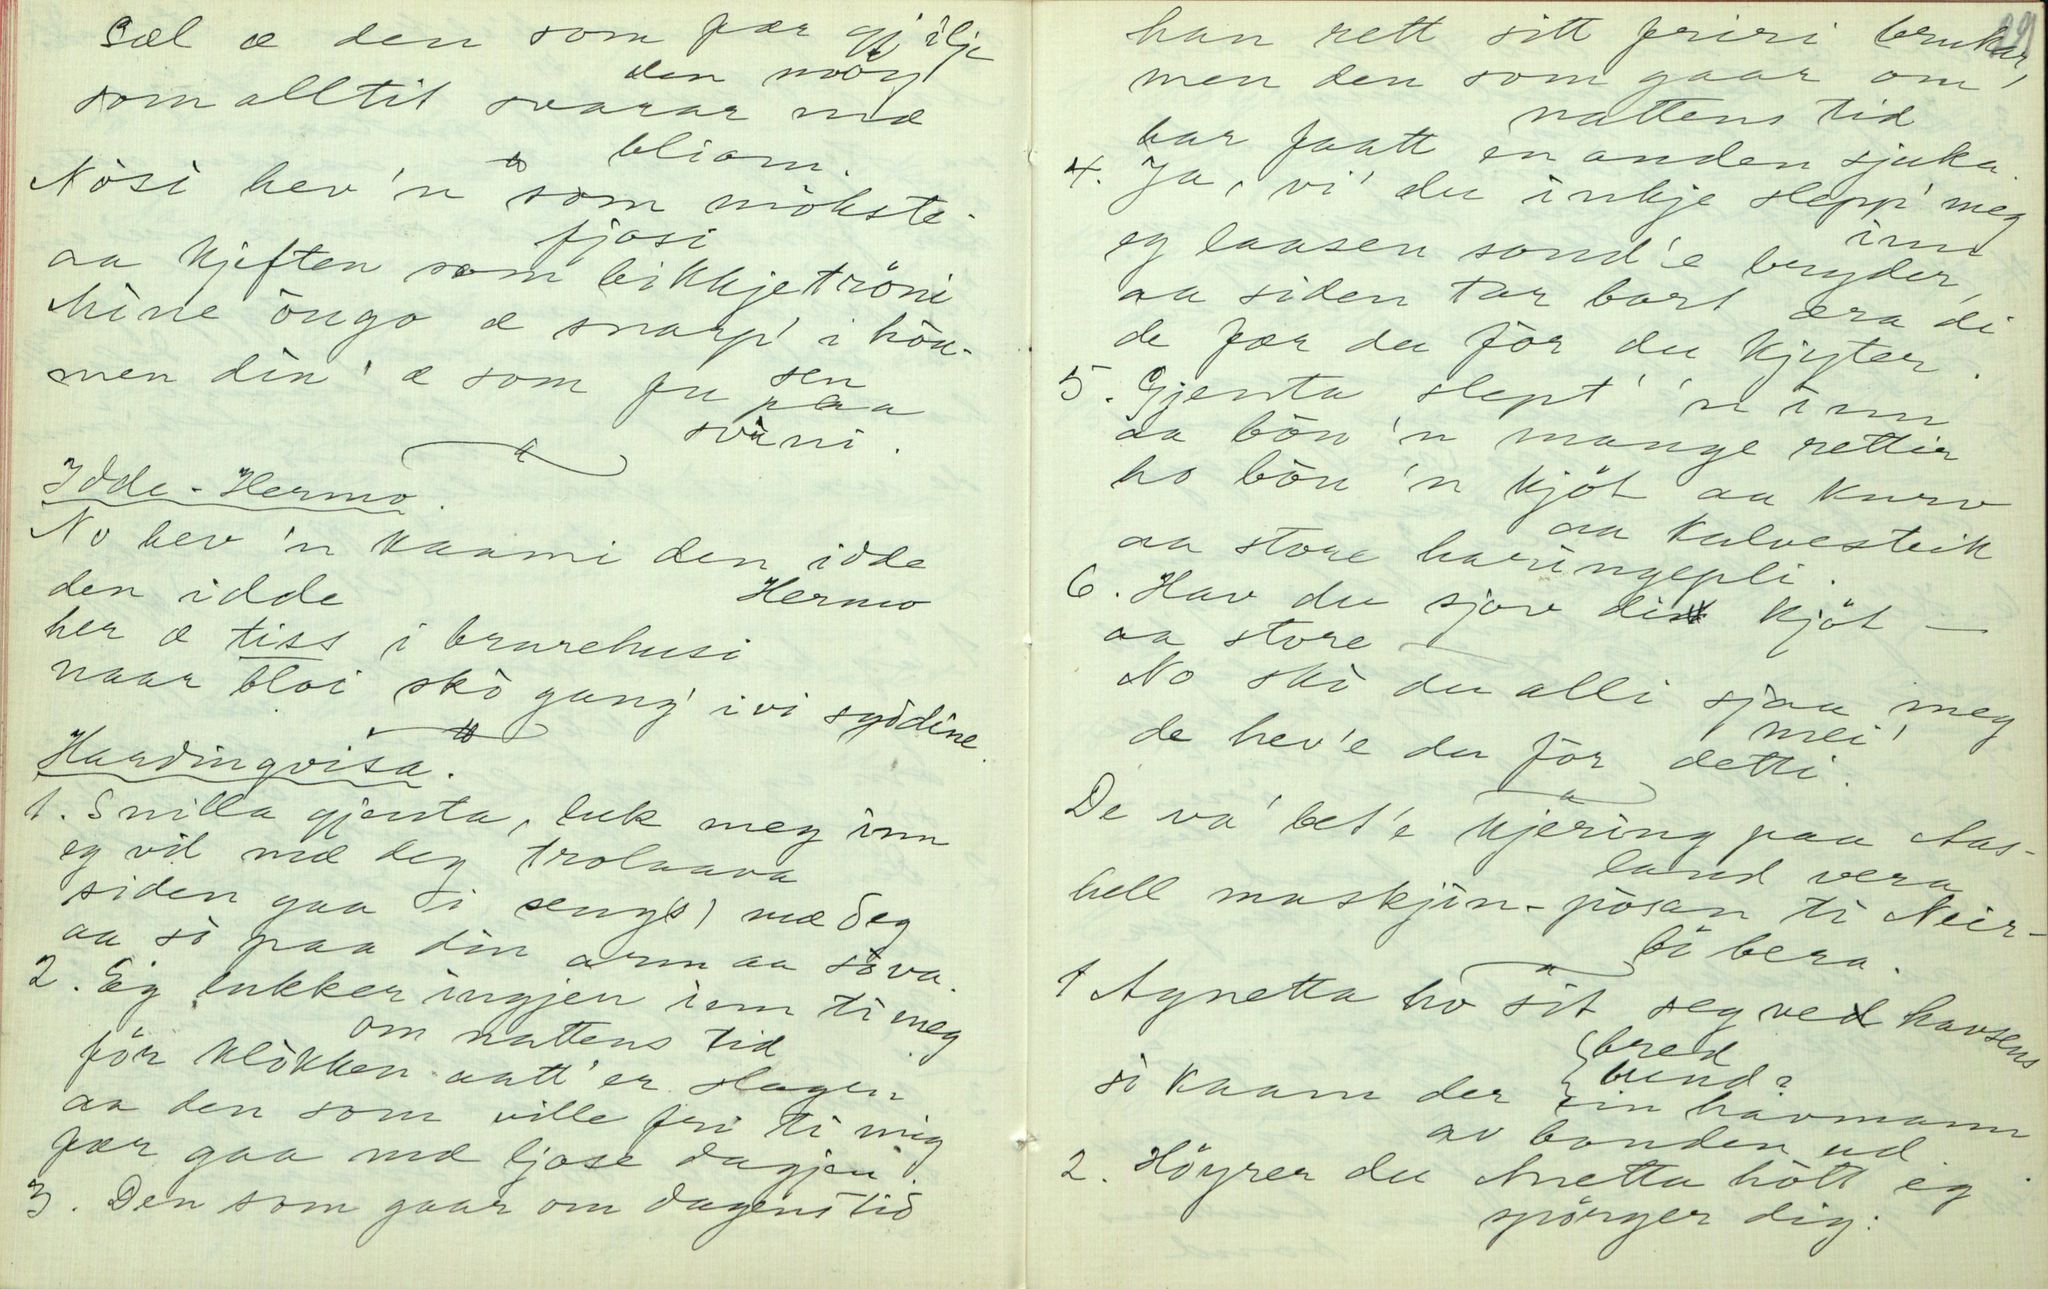 Sæl æ den som fær gjilje
den möy
som alltit svarar mæ
bliom.
Nösi hev'n som mökste-
fjosi
aa kjeften som bikkjetröni
Mine öugo æ snarp' i höu-
sen
men din' æ som fu paa
svini.
Idde-Hermo.
No hev'n kaami den idde
den idde Hermo
her æ tiss i brurehusi
naar bloi skò gang' ivi syddine.
Hardingvisa.
1. Snilla gjenta, luk meg inn
eg vil mæ deg trolaava
siden gaa i seng(s) mæ deg
aa sò paa din arm aa sòva.
2. Eg lukker ingjen inn ti meg
om nattens tid
för klòkken aatt' er slagen
aa den som ville fri ti mig
fær gaa mæ ljose dagjen.
3. Den som gaar om dagens tid
29
han rett sitt friri brukar,
men den som gaar om
nattens tid
har faatt en anden sjuka.
4. Ja, vi' du inkje slepp' meg
inn
eg laasen sond'e bryder,
aa siden tar bort æra di
de fær du för du kjyter.
5. Gjenta slept' 'n inn
aa böu 'n mange rettir
ho böu 'n kjöt aa kurv
aa kalvesteik
aa store haringepli.
6. Hav du sjov dit kjöt —
aa store —
No skò du alli sjaa meg
mei'
de hev'e du för detti.
De va' bet'e kjering paa Aas-
land vera
hell maskjin-pòsan ti Neir-
bö bera.
1 Agnetta ho sit seg ved havsens
bred
bund?
sò kaam der ein havmann
av bonden ud.
2. Höyrer du Anetta hòtt eg
spörger dig: